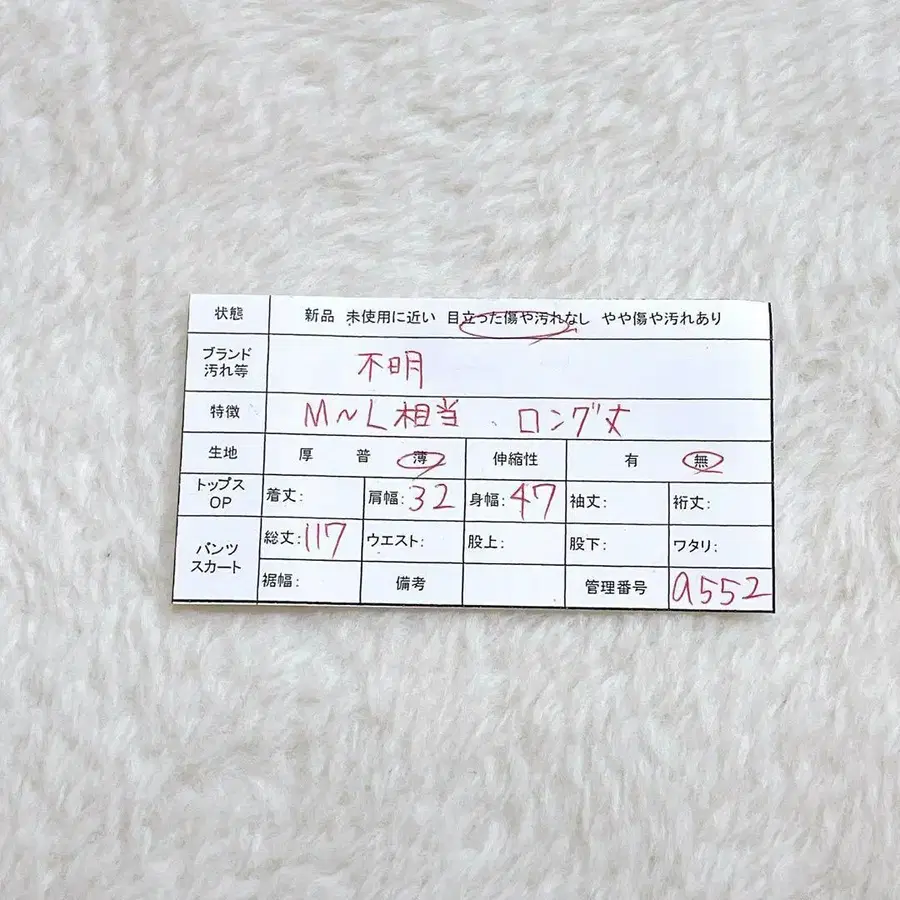 状態 新品 未使用に近い 目立った傷や汚れなし やや傷や汚れあり
ブランド
汚れ等 不明
特徴 M～L相当、ロング丈
生地 厚 普 薄 伸縮性 有 無
トップス
OP 着丈: 肩幅:32 身幅:47 袖丈: 裄丈:
パンツ
スカート 総丈:117 ウエスト: 股上: 股下: ワタリ:
裾幅: 備考 管理番号 a552